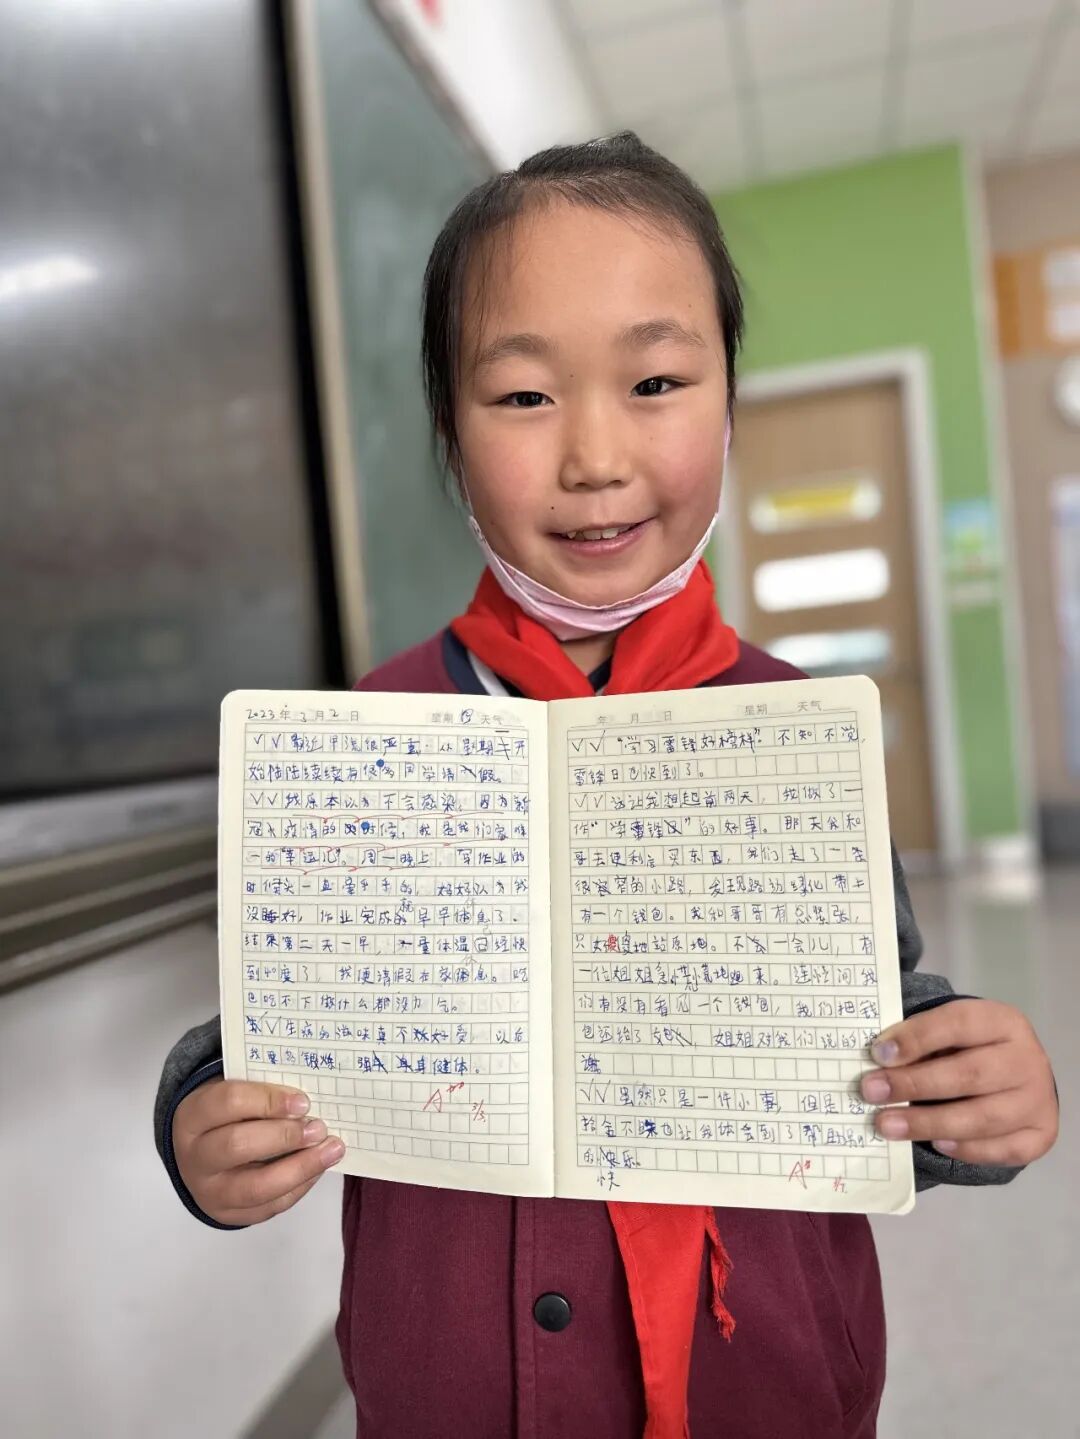 2023年3月2日 星期四 天气
最近甲流很严重，从星期一开
始陆陆续续有很多同学请假。
我原本以为不会感染，因为新
冠疫情的时候，我是我们家唯
一的“幸运儿”。周一晚上，写作业的
时候头一直晕乎乎的，妈妈以为我
没睡好，作业完成就早早休息了。
结果第二天一早，一量体温已经快
到40度了，我便请假在家休息。吃
也吃不下做什么都没力气。
生病的滋味真不好受，以后
我要多锻炼，强身健体。
A 3/3
年 月 日 星期 天气
“学习雷锋好榜样”不知不觉，
雷锋日已快到了。
这让我想起前两天，我做了一
件“学雷锋”的好事。那天我和
哥去便利店买东西，我们走了一条
很窄的小路，发现路边绿化带上
有一个钱包。我和哥哥有点紧张，
只好傻傻地站原地。不一会儿，有
一位姐姐急忙慌慌地跑来。连忙问我
们有没有看见一个钱包，我们把钱
包还给了她，姐姐对我们说的谢
谢
虽然只是一件小事，但是这
拾金不昧也让我体会到了帮助
的快乐。
快
A